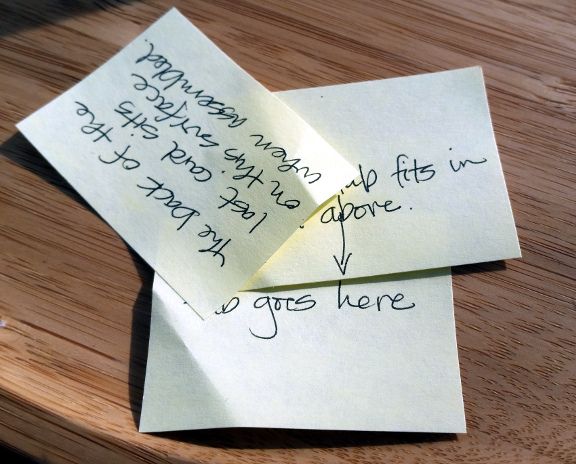 The back of the
last card sits
on this surface
when assembled.
fits in
above.
goes here